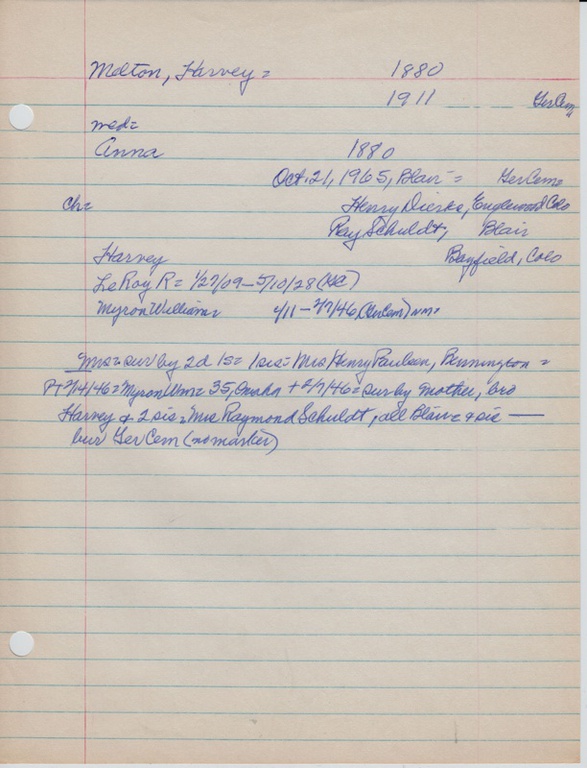 Melton, Harvey = 1880
1911 GerCem
med=
Anna 1880
Oct. 21, 1965, Blair = GerCem=
ch= Henry Dierks, Englewood Colo
Ray Schuldt, Blair
Harvey Bayfield, Colo
LeRoy R = 1/27/09 – 5/10/28 (GC)
Myron William= 4/11 – 2/7/46, (GerCem) nm=
Mrs= sur by 2d 1s= 1sis= Mrs Henry Paulsen, Bennington =
PT 2/14/46= Myron Wm= 35, Omaha + 2/7/46= sur by mother, bro
Harvey + 2 sis= Mrs Raymond Schuldt, all Blair= + sis —
bur Ger Cem (no marker)